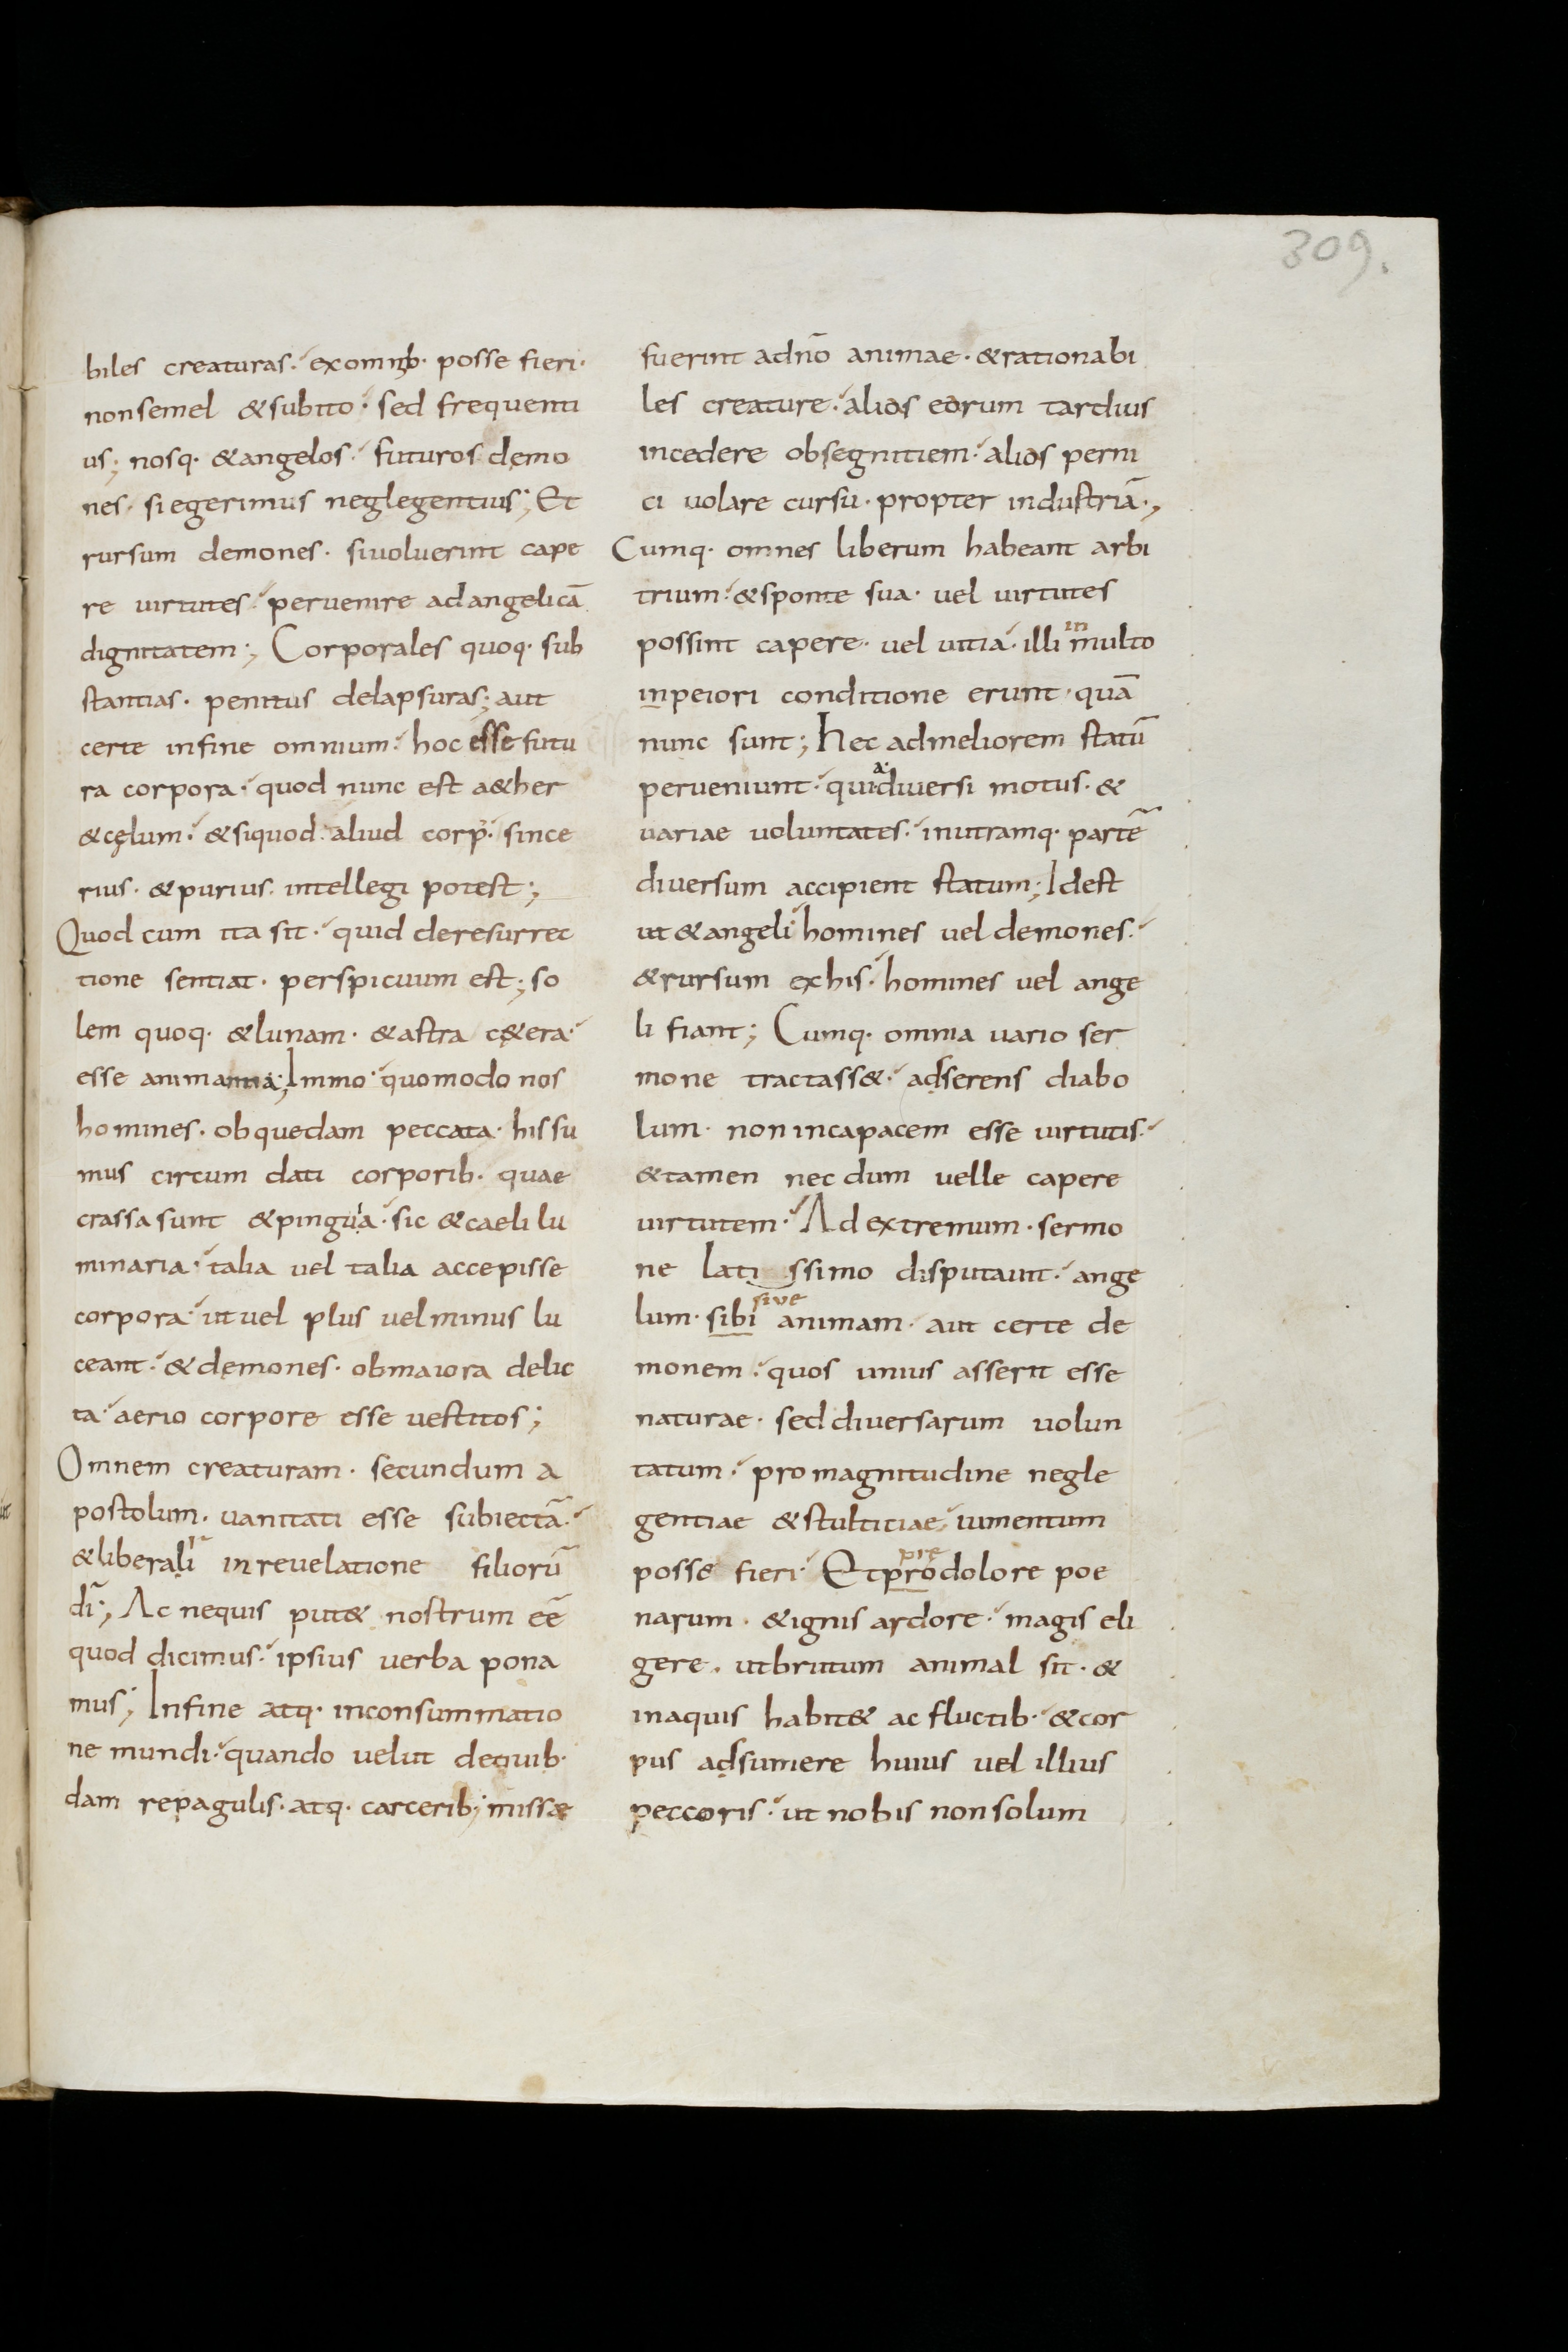 309.
biles creaturas· exomnib· posse fieri·
nonsemel &subito· sed frequenti
us; nosq· &angelos· futuros demo
nes· siegerimus neglegentius; Et
rursum demones· siuoluerint cape
re uirtutes· peruenire adangelicā
dignitatem; Corporales quoq· sub
stantias· penitus delapsuras; aut
certe infine omnium· hoc esse futu
ra corpora· quod nunc est a&her
&cęlum· &siquod aliud corp̄· since
rius· &purius intellegi potest;
Quod cum ita sit· quid deresurrec
tione sentiat· perspicuum est; so
lem quoq· &lunam· &astra c&era·
esse animantia; Immo quomodo nos
homines· obquedam peccata· hissu
mus circum dati corporib· quae
crassa sunt &pinguia· sic &caeli lu
minaria· talia uel talia accepisse
corpora· ut uel plus uel minus lu
ceant· &demones· obmaiora delic
ta· aerio corpore esse uestitos;
Omnem creaturam· secundum a
postolum· uanitati esse subiectā·
&liberali inreuelatione filiorū
dī; Ac nequis put& nostrum eē
quod dicimus· ipsius uerba pona
mus; Infine atq· inconsummatio
ne mundi· quando uelut dequib·
dam repagulis· atq· carcerib; missae
fuerint adn̄o animae· &rationabi
les creature· alias eorum tardius
incedere obsegnitiem· alias perni
ci uolare cursu· propter industriā·,
Cumq· omnes liberum habeant arbi
trium· &sponte sua· uel uirtutes
possint capere· uel uitia· illi in multo
inpeiori conditione erunt· quā
nunc sunt; Hec admeliorem statū
perueniunt· quia diuersi motus· &
uariae uoluntates· inutramq· partē
diuersum accipient statum; Idest
ut &angeli homines uel demones·
&rursum exhis· homines uel ange
li fiant; Cumq· omnia uario ser
mone tractass&· adserens diabo
lum· non incapacem esse uirtutis·
&tamen nec dum uelle capere
uirtutem· Ad extremum· sermo
ne lati ssimo disputauit· ange
lum· sibi sive animam· aut certe de
monem· quos unius asserit esse
naturae· sed diuersarum uolun
tatum· promagnitudine negle
gentiae &stultitiae, iumentum
posse fieri· Etpro pre dolore poe
narum· &ignis ardore· magis eli
gere· utbrutum animal sit· &
inaquis habit& ac fluctib· &cor
pus adsumere huius uel illius
peccoris· ut nobis non solum